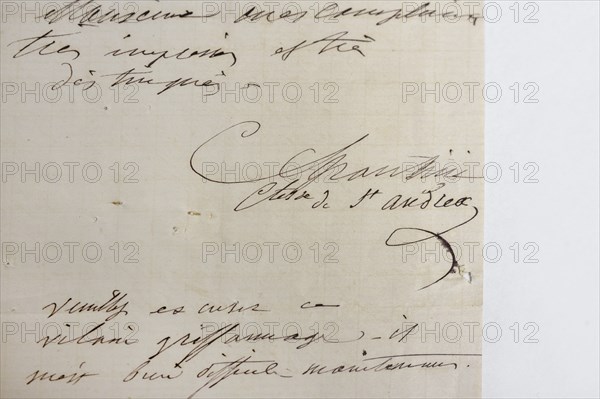 Monsieur mes complimens
très empressés et très
distingués.
C Spontini
Ctesse de St Andrea
veuillez excuser ce
vilain griffonnage - il
m'est bien difficile maintenant.
PHOTO 12